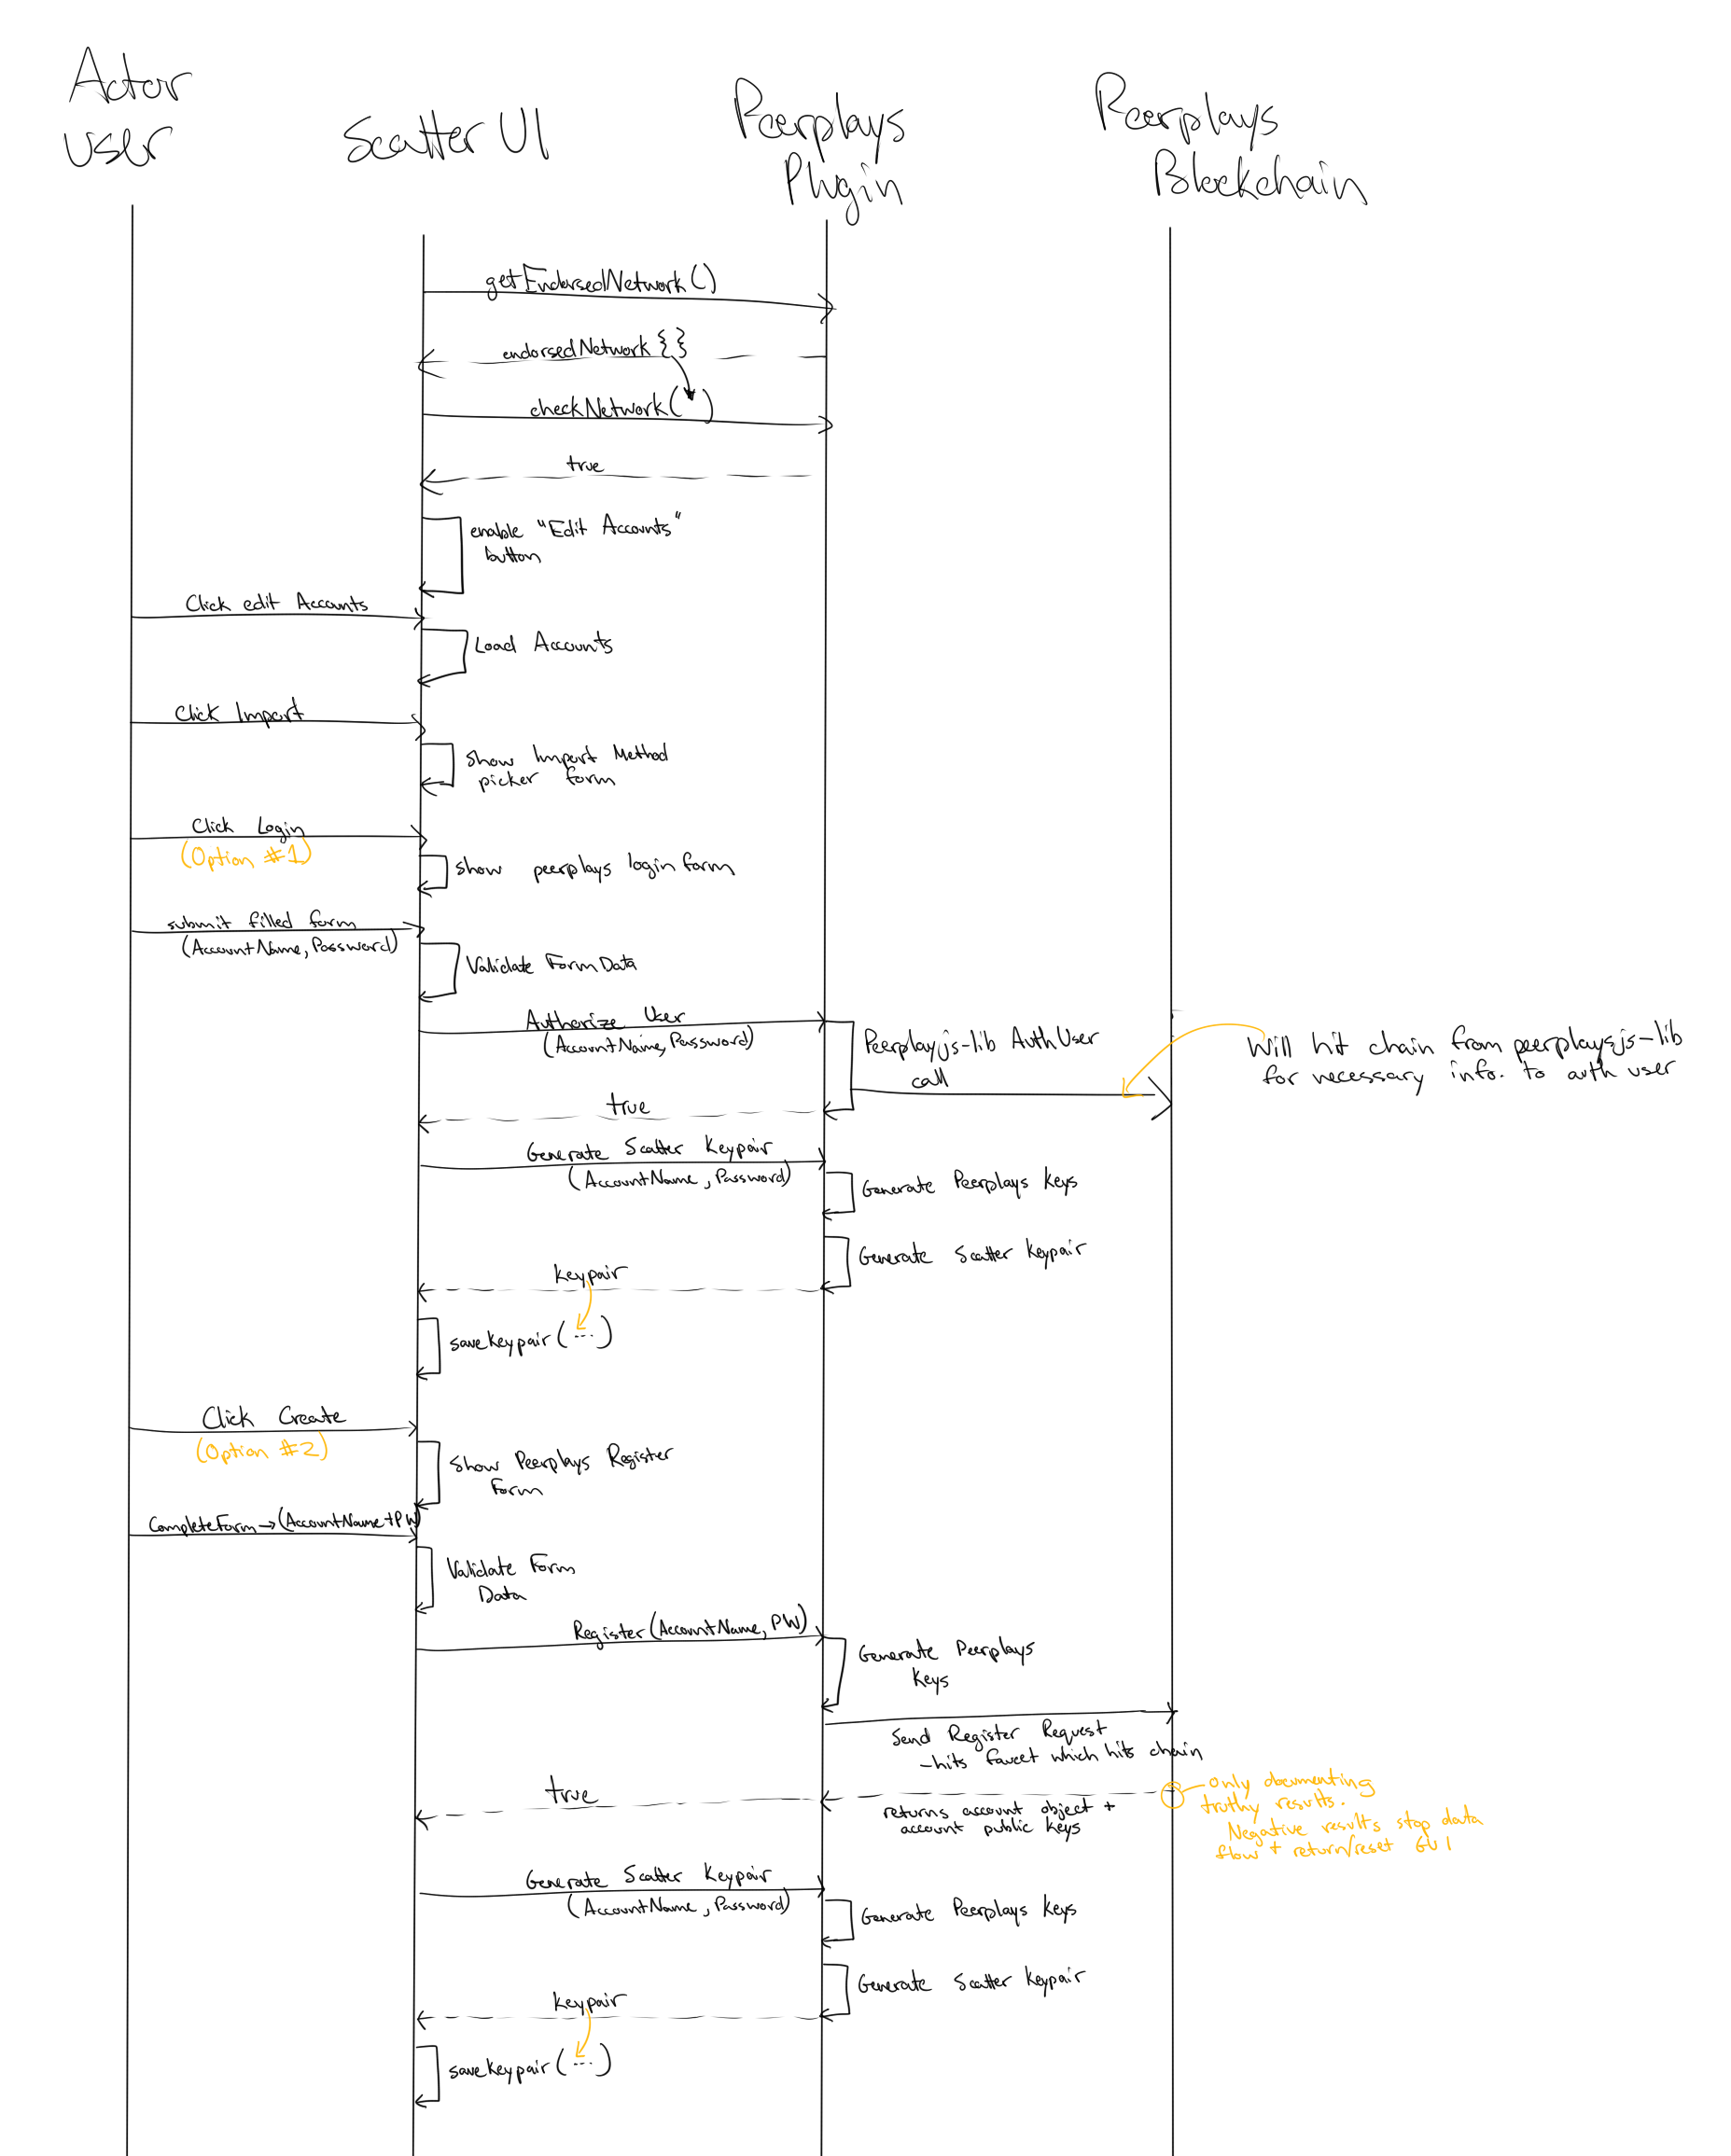 Actor
User
Scatter UI
Peerplays
Plugin
Peerplays
Blockchain
getEndorsedNetwork()
endorsedNetwork {}
checkNetwork( )
true
enable "Edit Accounts"
button
Click edit Accounts
Load Accounts
Click Import
show Import Method
picker form
Click Login
(Option #1)
show peerplays login form
submit filled form
(AccountName, Password)
Validate Form Data
Authorize User
(AccountName, Password)
Peerplayjs-lib AuthUser
call
Will hit chain from peerplaysjs-lib
for necessary info. to auth user
true
Generate Scatter Keypair
(AccountName, Password)
Generate Peerplays Keys
Generate Scatter Keypair
Keypair
saveKeypair(...)
Click Create
(Option #2)
Show Peerplays Register
Form
CompleteForm→(AccountName+PW)
Validate Form
Data
Register(AccountName, PW)
Generate Peerplays
Keys
Send Register Request
-hits faucet which hits chain
true
returns account object +
account public keys
only documenting
truthy results.
Negative results stop data
flow + return/reset GUI
Generate Scatter Keypair
(AccountName, Password)
Generate Peerplays Keys
Generate Scatter Keypair
Keypair
saveKeypair(...)